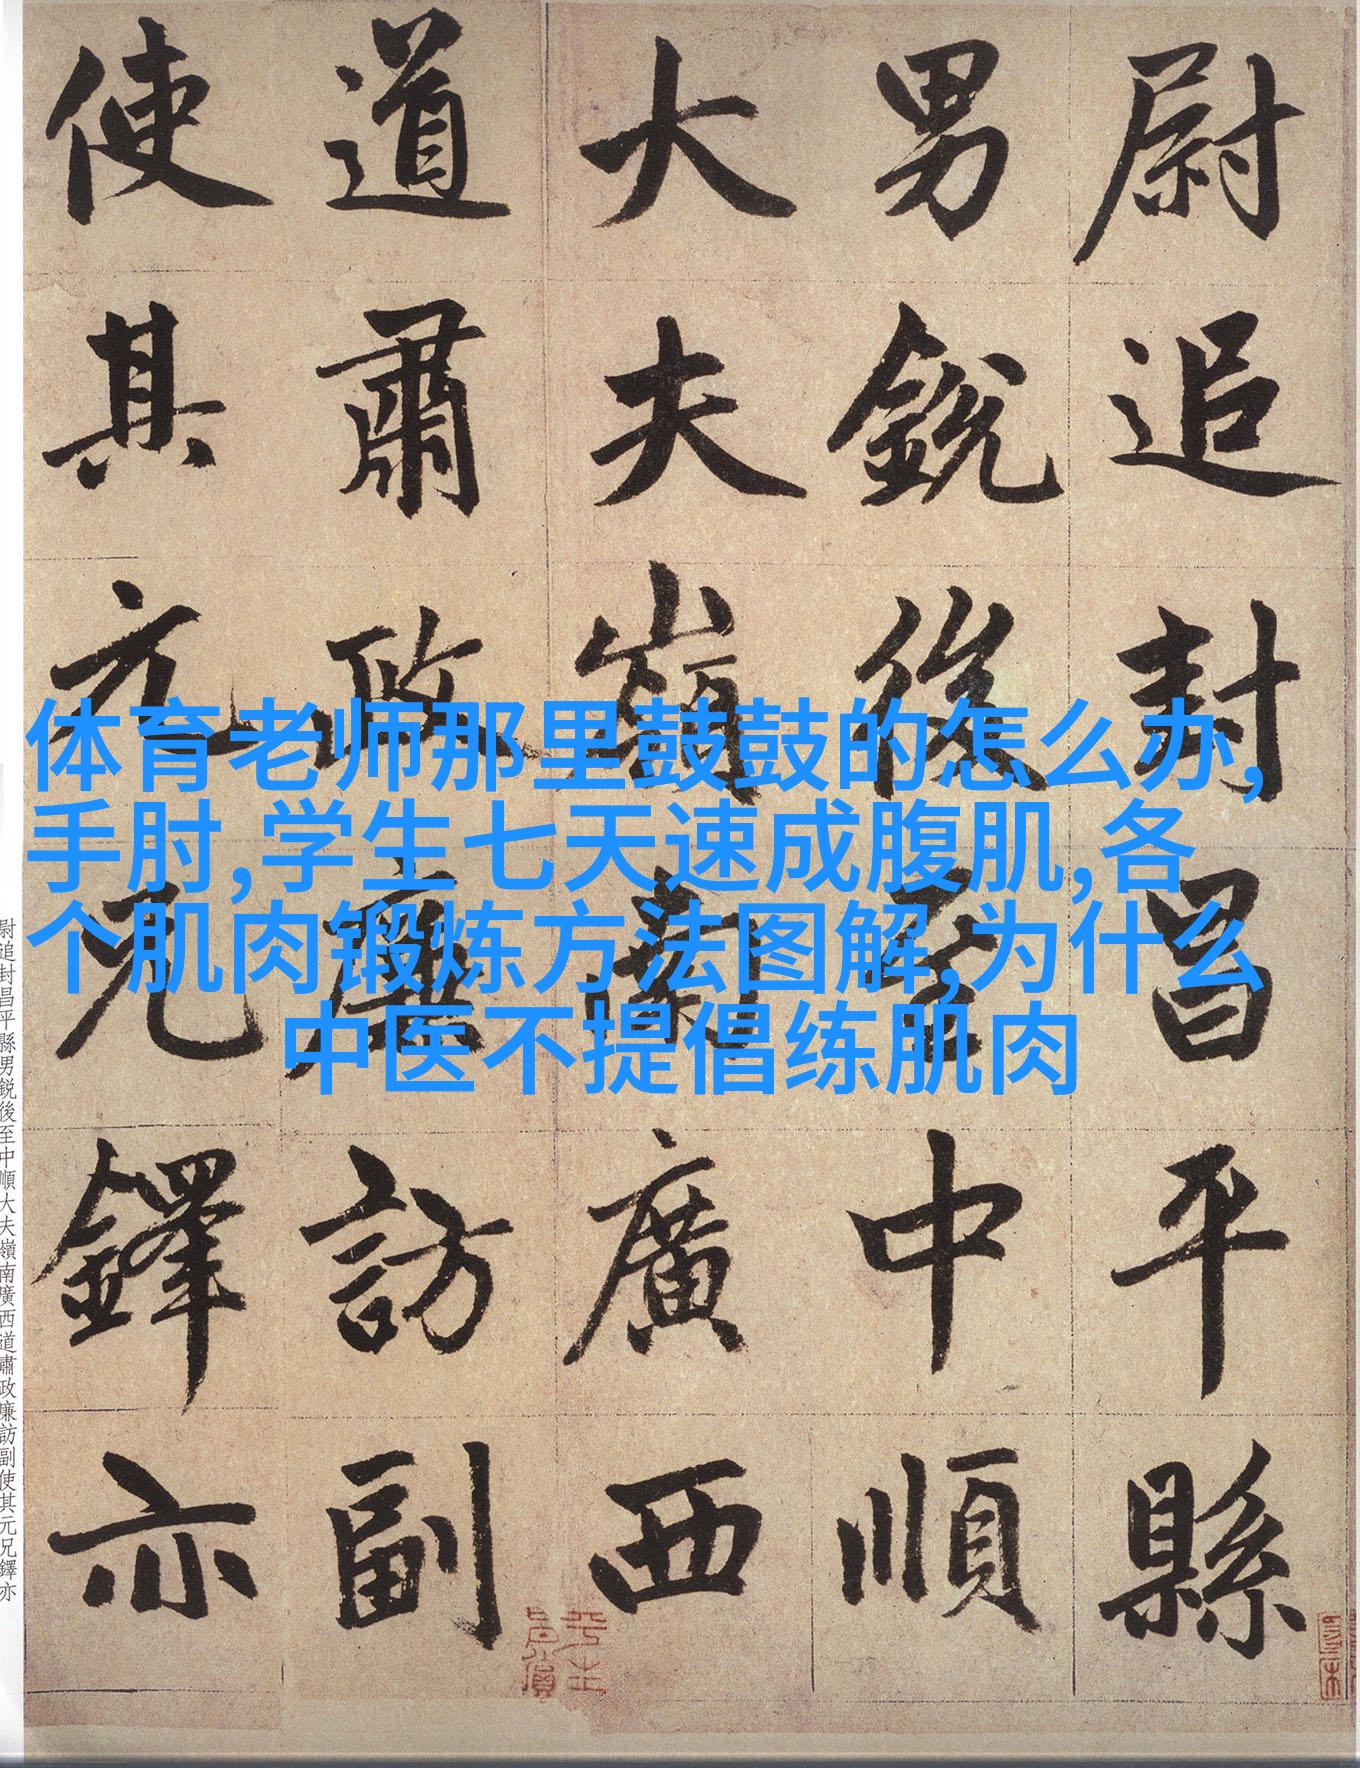 尉追封昌平縣
男銳後至中順
大夫嶺南廣西
道肅政廉訪副
使其元兄鐸亦
体育老师那里鼓鼓的怎么办,
手肘,学生七天速成腹肌,各
个肌肉锻炼方法图解,为什么
中医不提倡练肌肉
尉追封昌平縣男鋭後至中順大夫嶺南廣西道肅政廉訪副使其元兄鐸亦